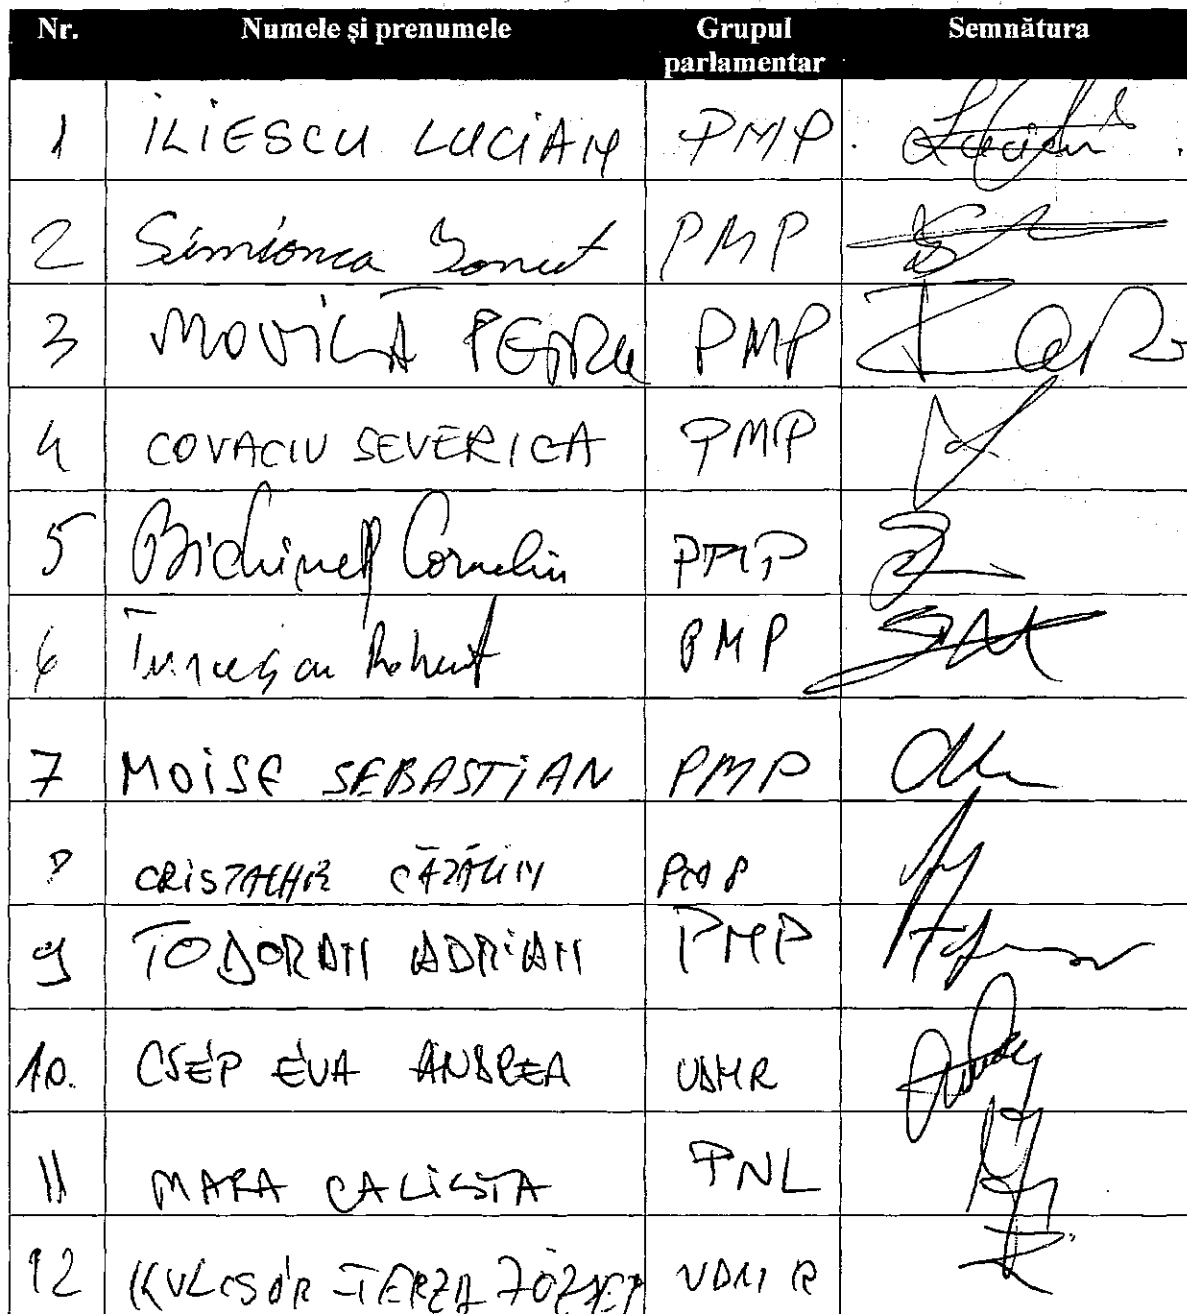 Nr. Numele și prenumele Grupul parlamentar Semnătura
1 ILIESCU LUCIAN PMP.
2 Simionca Ionuț PMP
3 MOVILĂ PETRU PMP
4 COVACIU SEVERICA PMP
5 Bichineț Corneliu PMP
6 Turcescu Robert PMP
7 MOISE SEBASTIAN PMP
8 CRISTACHE CĂTĂLIN PMP
9 TODORAN ADRIAN PMP
10. CSÉP ÉVA ANDREA UDMR
11 MARA CALISTA PNL
12 KULCSÁR-TERZA JÓZSEF UDMR